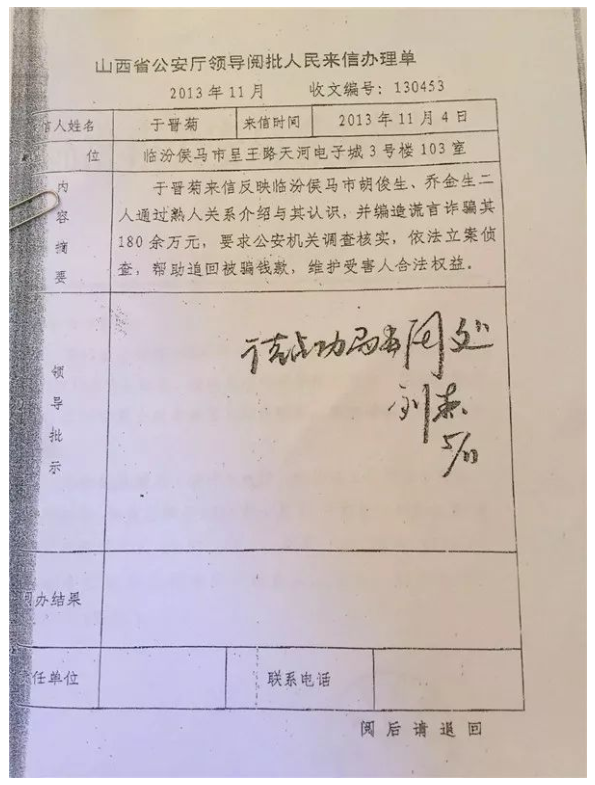 山西省公安厅领导阅批人民来信办理单
2013年11月 收文编号：130453
信人姓名 于晋菊 来信时间 2013年11月4日
位 临汾侯马市呈王路天河电子城3号楼103室
内容摘要
于晋菊来信反映临汾侯马市胡俊生、乔金生二
人通过熟人关系介绍与其认识，并编造谎言诈骗其
180余万元，要求公安机关调查核实，依法立案侦
查，帮助追回被骗钱款，维护受害人合法权益。
领导批示
请占功局长阅处
5/11
办结果
任单位 联系电话
阅后请退回